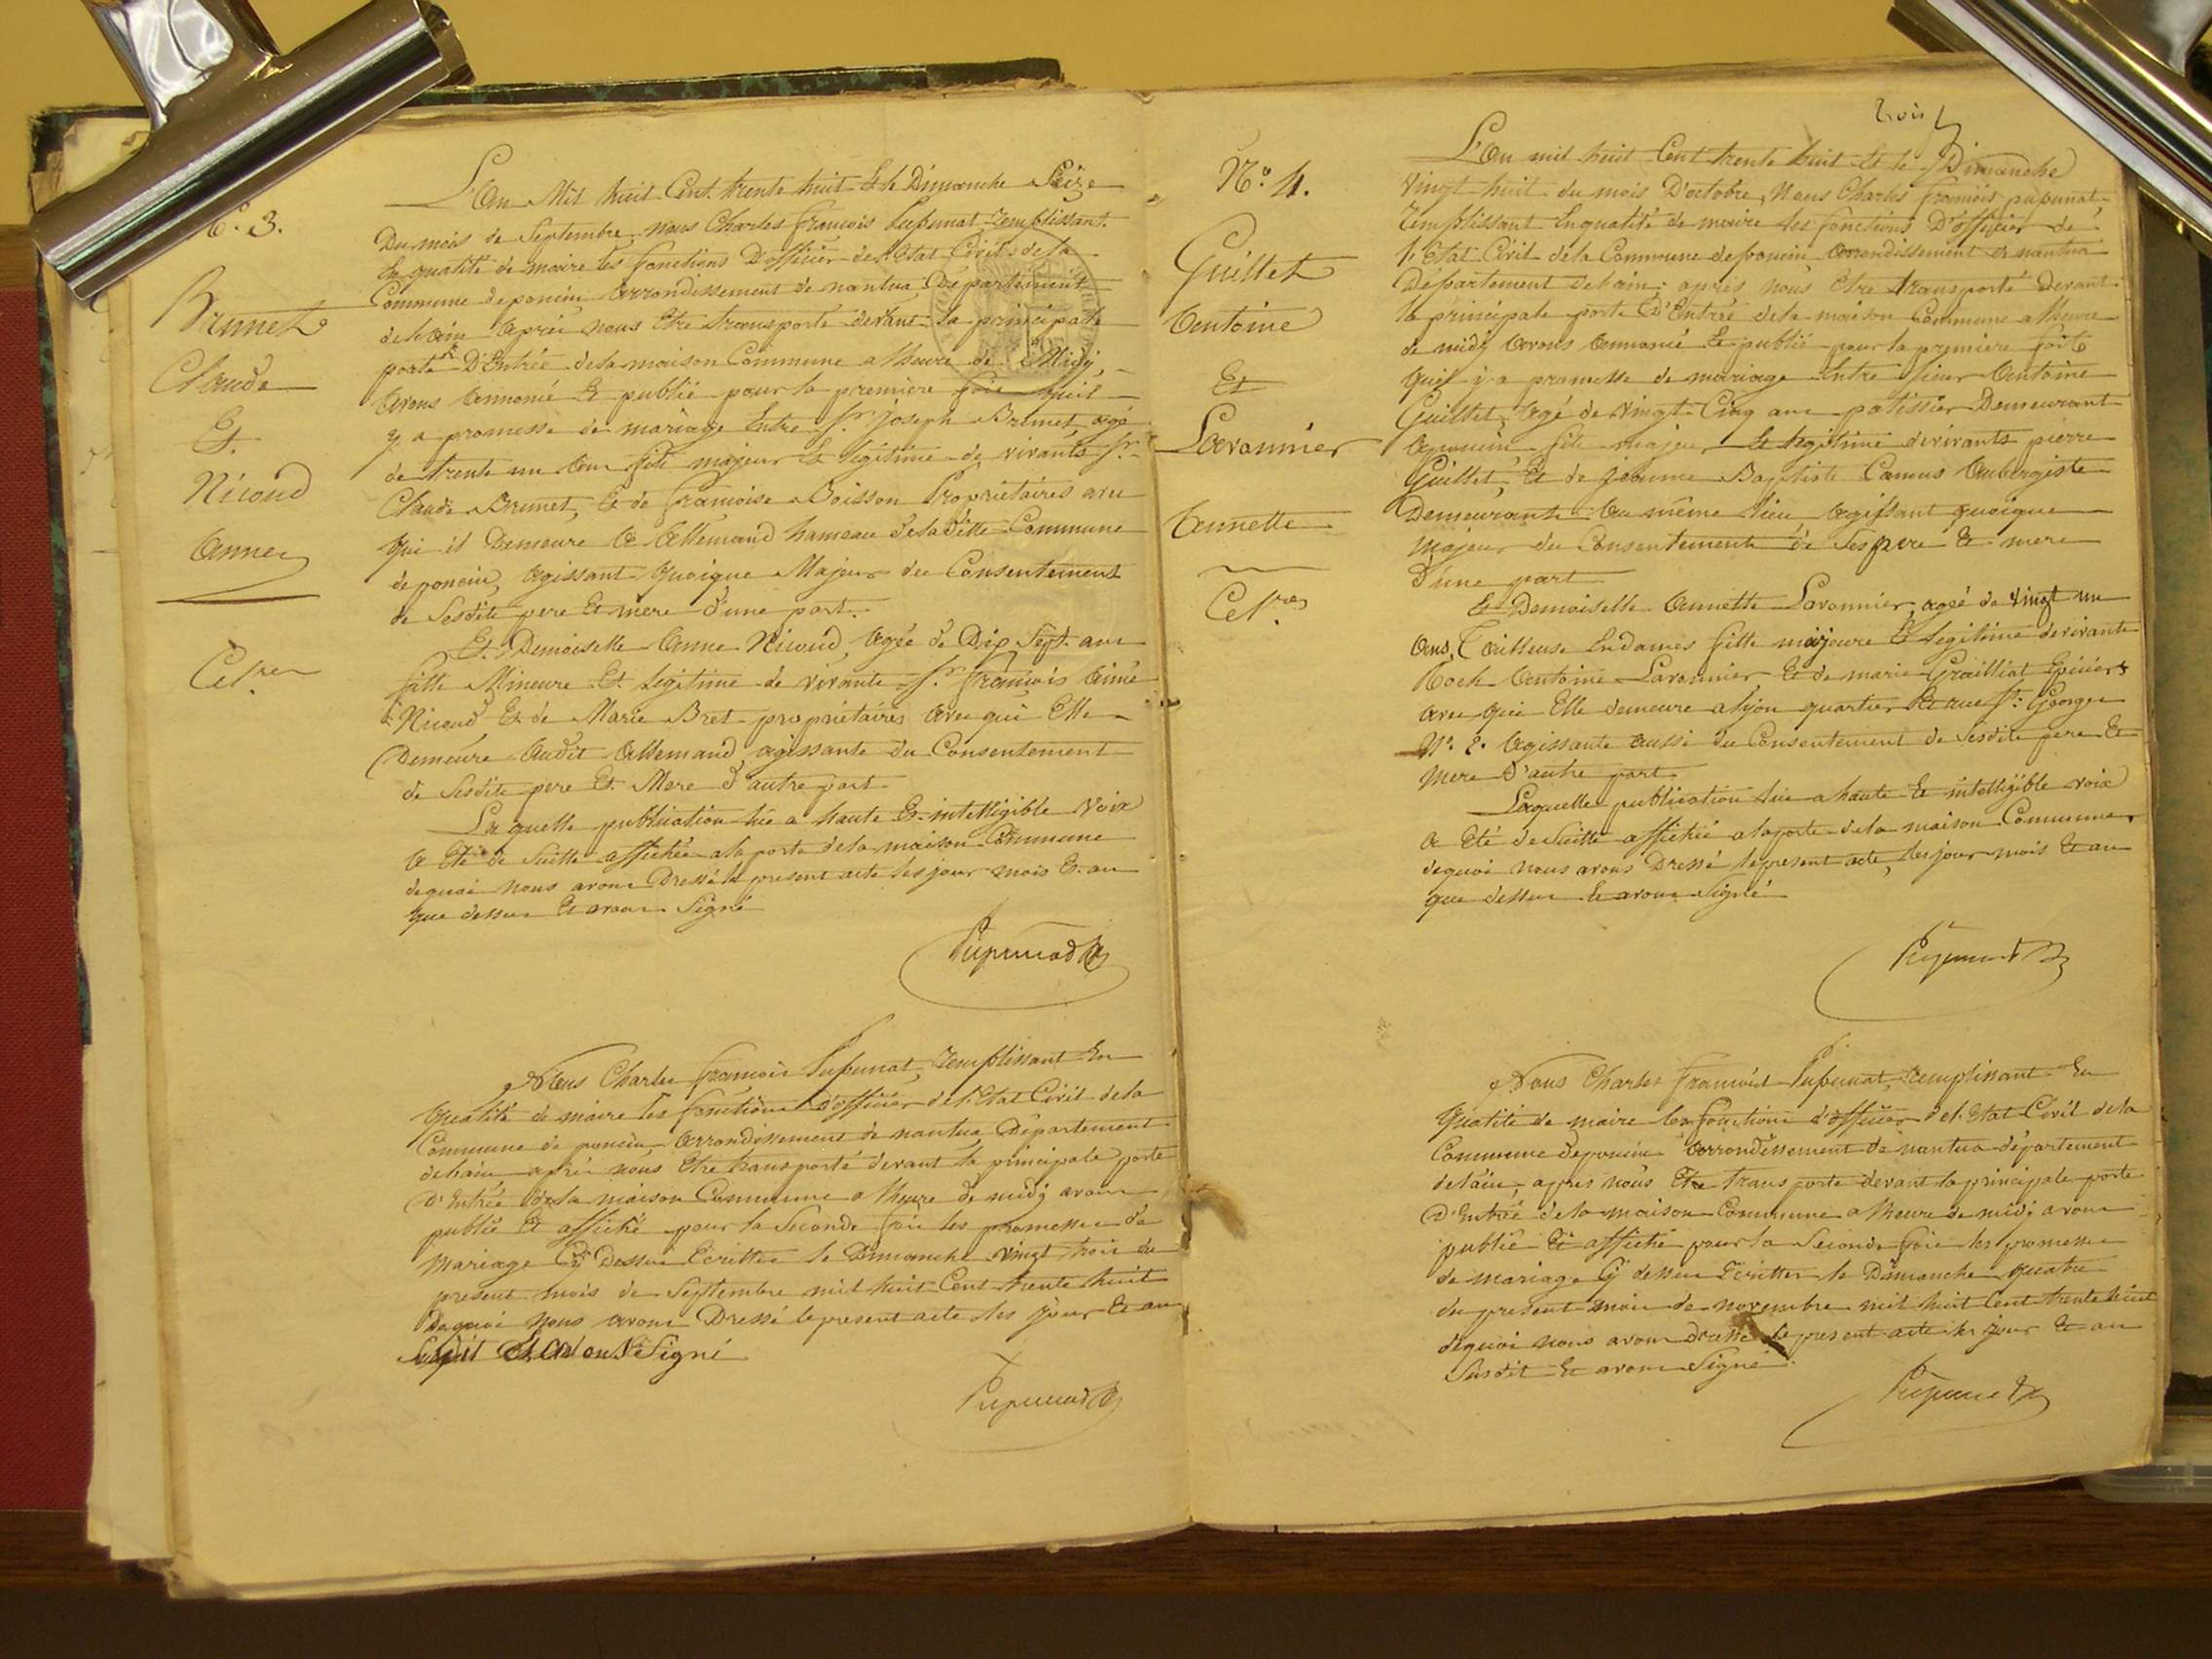 N.° 3.
Brunet
Claude
Et
Nicoud
Anne
Cel.res
L'An Mil huit Cent trente huit Et le Dimanche Seize
Du mois de Septembre, nous Charles francois Pupunat Remplissant
En qualité de maire les fonctions D'officier de l'Etat Civil de la
Commune de poncin Arrondissement de nantua Département
de l'ain Aprés nous Etre transporté devant la principale
porte D'Entrée de la maison Commune a lheure de Midy,
Avons Annoncé Et publié pour la premiere fois quil
y a promesse de mariage Entre S.r Joseph Brunet agé
de trente un ans fils majeur Et légitime de vivants S.r
Claude Brunet, Et de francoise Boisson Propriétaires avec
qui il Demeure A Allemand hameau de la ditte Commune
de poncin, agissant quoique Majeur du Consentement
de Sesdits pere Et mere d'une part.
Et Demoiselle Anne Nicoud, Agée de Dix Sept ans
fille Mineure Et legitime de vivants S.r francois Aimé
Nicoud Et de Marie Bret propriétaires Avec qui Elle
Demeure Audit Allemand, agissante du Consentement
de Sesdits pere Et Mere d'autre part
La quelle publication lue a haute Et intelligible Voix
A Eté de Suitte affichée a la porte de la maison Commune
de quoi nous avons Dressé le present acte les jour mois Et an
que dessus Et avons Signé
Pupunat
Nous Charles francois Pupunat, Remplissant En
qualité de maire les fonctions d'officier de l'Etat Civil de la
Commune de poncin Arrondissement de nantua Département
de lain, aprés nous Etre transporté devant la principale porte
D'Entrée de la maison Commune a lheure de midy avons
publié Et affiché pour la Seconde fois les promesses de
Mariage Cy Dessus Ecrittes le Dimanche vingt trois du
présent mois de Septembre mil huit Cent trente huit
De quoi nous avons Dressé le present acte les jour Et an
Susdit Et avons Signé
Pupunat
trois
N.° 4.
Guillet
Antoine
Et
Lavonnier
Annette
Cel.res
L'An mil huit Cent trente huit Et le Dimanche
Vingt huit du mois D'octobre, Nous Charles francois pupunat
Remplissant En qualité de maire les fonctions D'officier de
l'Etat Civil de la Commune de poncin Arrondissement de nantua
Département de l'ain; aprés nous Etre transporté devant
la principale porte D'Entrée de la maison Commune a lheure
de midy Avons Annoncé Et publié pour la premiere fois
qu'il y a promesse de mariage Entre sieur Antoine
Guillet, Agé de vingt Cinq ans patissier Demeurant
A poncin fils majeur Et legitime de vivants pierre
Guillet, Et de jeanne Baptiste Camus Aubergiste
Demeurants Au même lieu, Agissant quoique
Majeur du Consentement de Ses pere Et mere
D'une part
Et Demoiselle Annette Lavonnier, agée de Vingt un
Ans, Tailleuse En dames fille majeure Et legitime de vivants
Roch Antoine Lavonnier Et de marie Grailliat Epiciers
avec qui Elle demeure a lyon quartier Et rue S.t Georges
N.° 2. Agissante Aussi du Consentement de Sesdits pere Et
Mere D'autre part
Laquelle publication lue a haute Et intelligible voix
A Eté de Suitte affichée a la porte de la maison Commune
de quoi nous avons Dressé le present acte, les jour mois Et an
que dessus Et avons Signé
Pupunat
Nous Charles francois Pupunat, remplissant En
Qualité de maire les fonctions d'officier de l'Etat Civil de la
Commune de poncin Arrondissement de nantua département
de lain, apres nous Etre transporté devant la principale porte
D'Entrée de la maison Commune a lheure de midy avons
publié Et affiché pour la Seconde fois les promesses
de mariage Cy dessus Ecrittes le Dimanche quatre
du present mois de novembre mil huit Cent trente huit
de quoi nous avons dressé le present acte les jour Et an
Susdit Et avons Signé
Pupunat